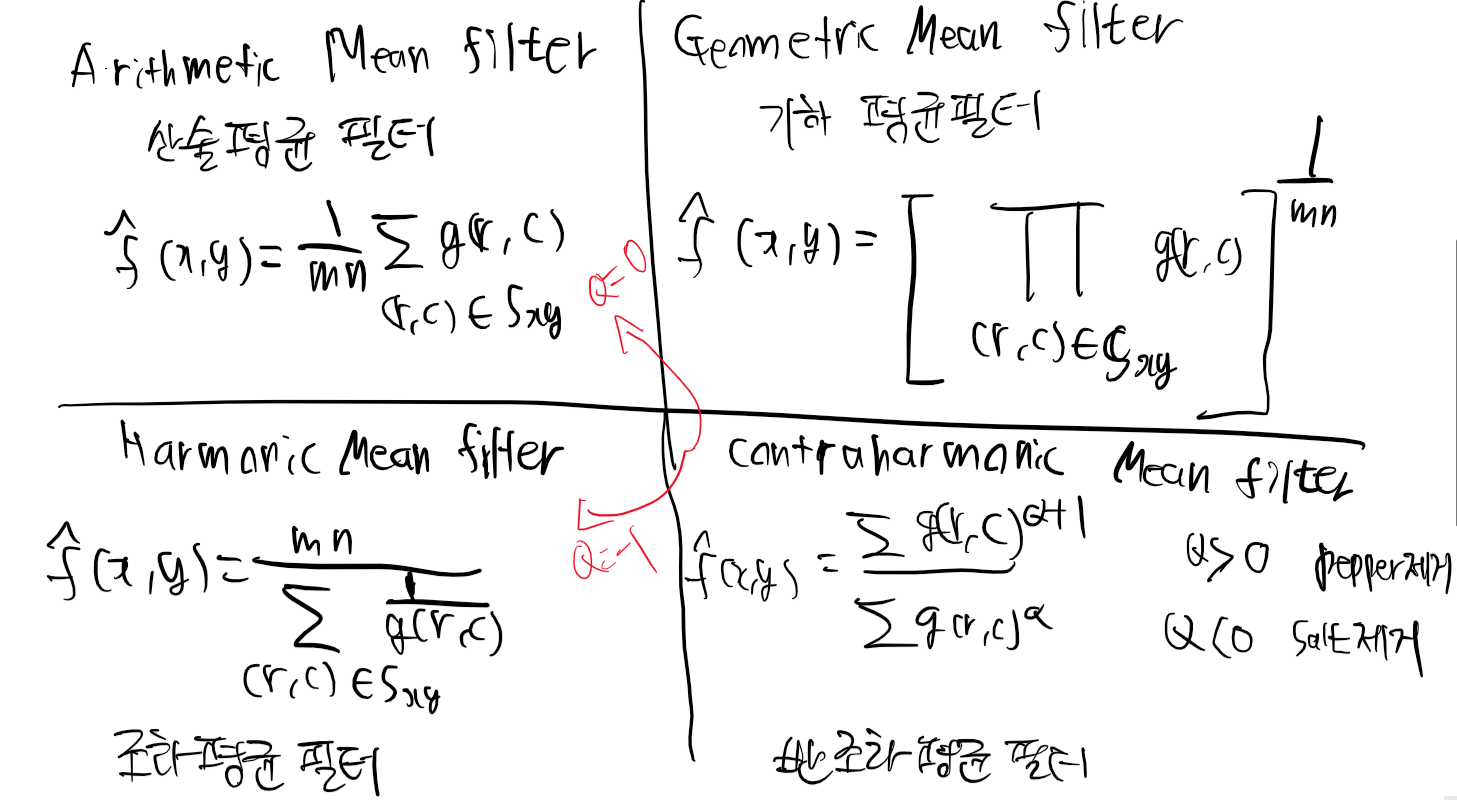 Arithmetic Mean filter
산술평균 필터
f̂(x,y) = 1/mn ∑ g(r,c)
(r,c) ∈ Sxy
Geometric Mean filter
기하 평균필터
f̂(x,y) = [ ∏ g(r,c) ]^1/mn
(r,c) ∈ Sxy
Q=0
Q=-1
Harmonic Mean filter
f̂(x,y) = mn / ∑ 1/g(r,c)
(r,c) ∈ Sxy
조화평균 필터
contraharmonic Mean filter
f̂(x,y) = ∑ g(r,c)^Q+1 / ∑ g(r,c)^Q
Q>0 pepper제거
Q<0 salt제거
반조화평균 필터